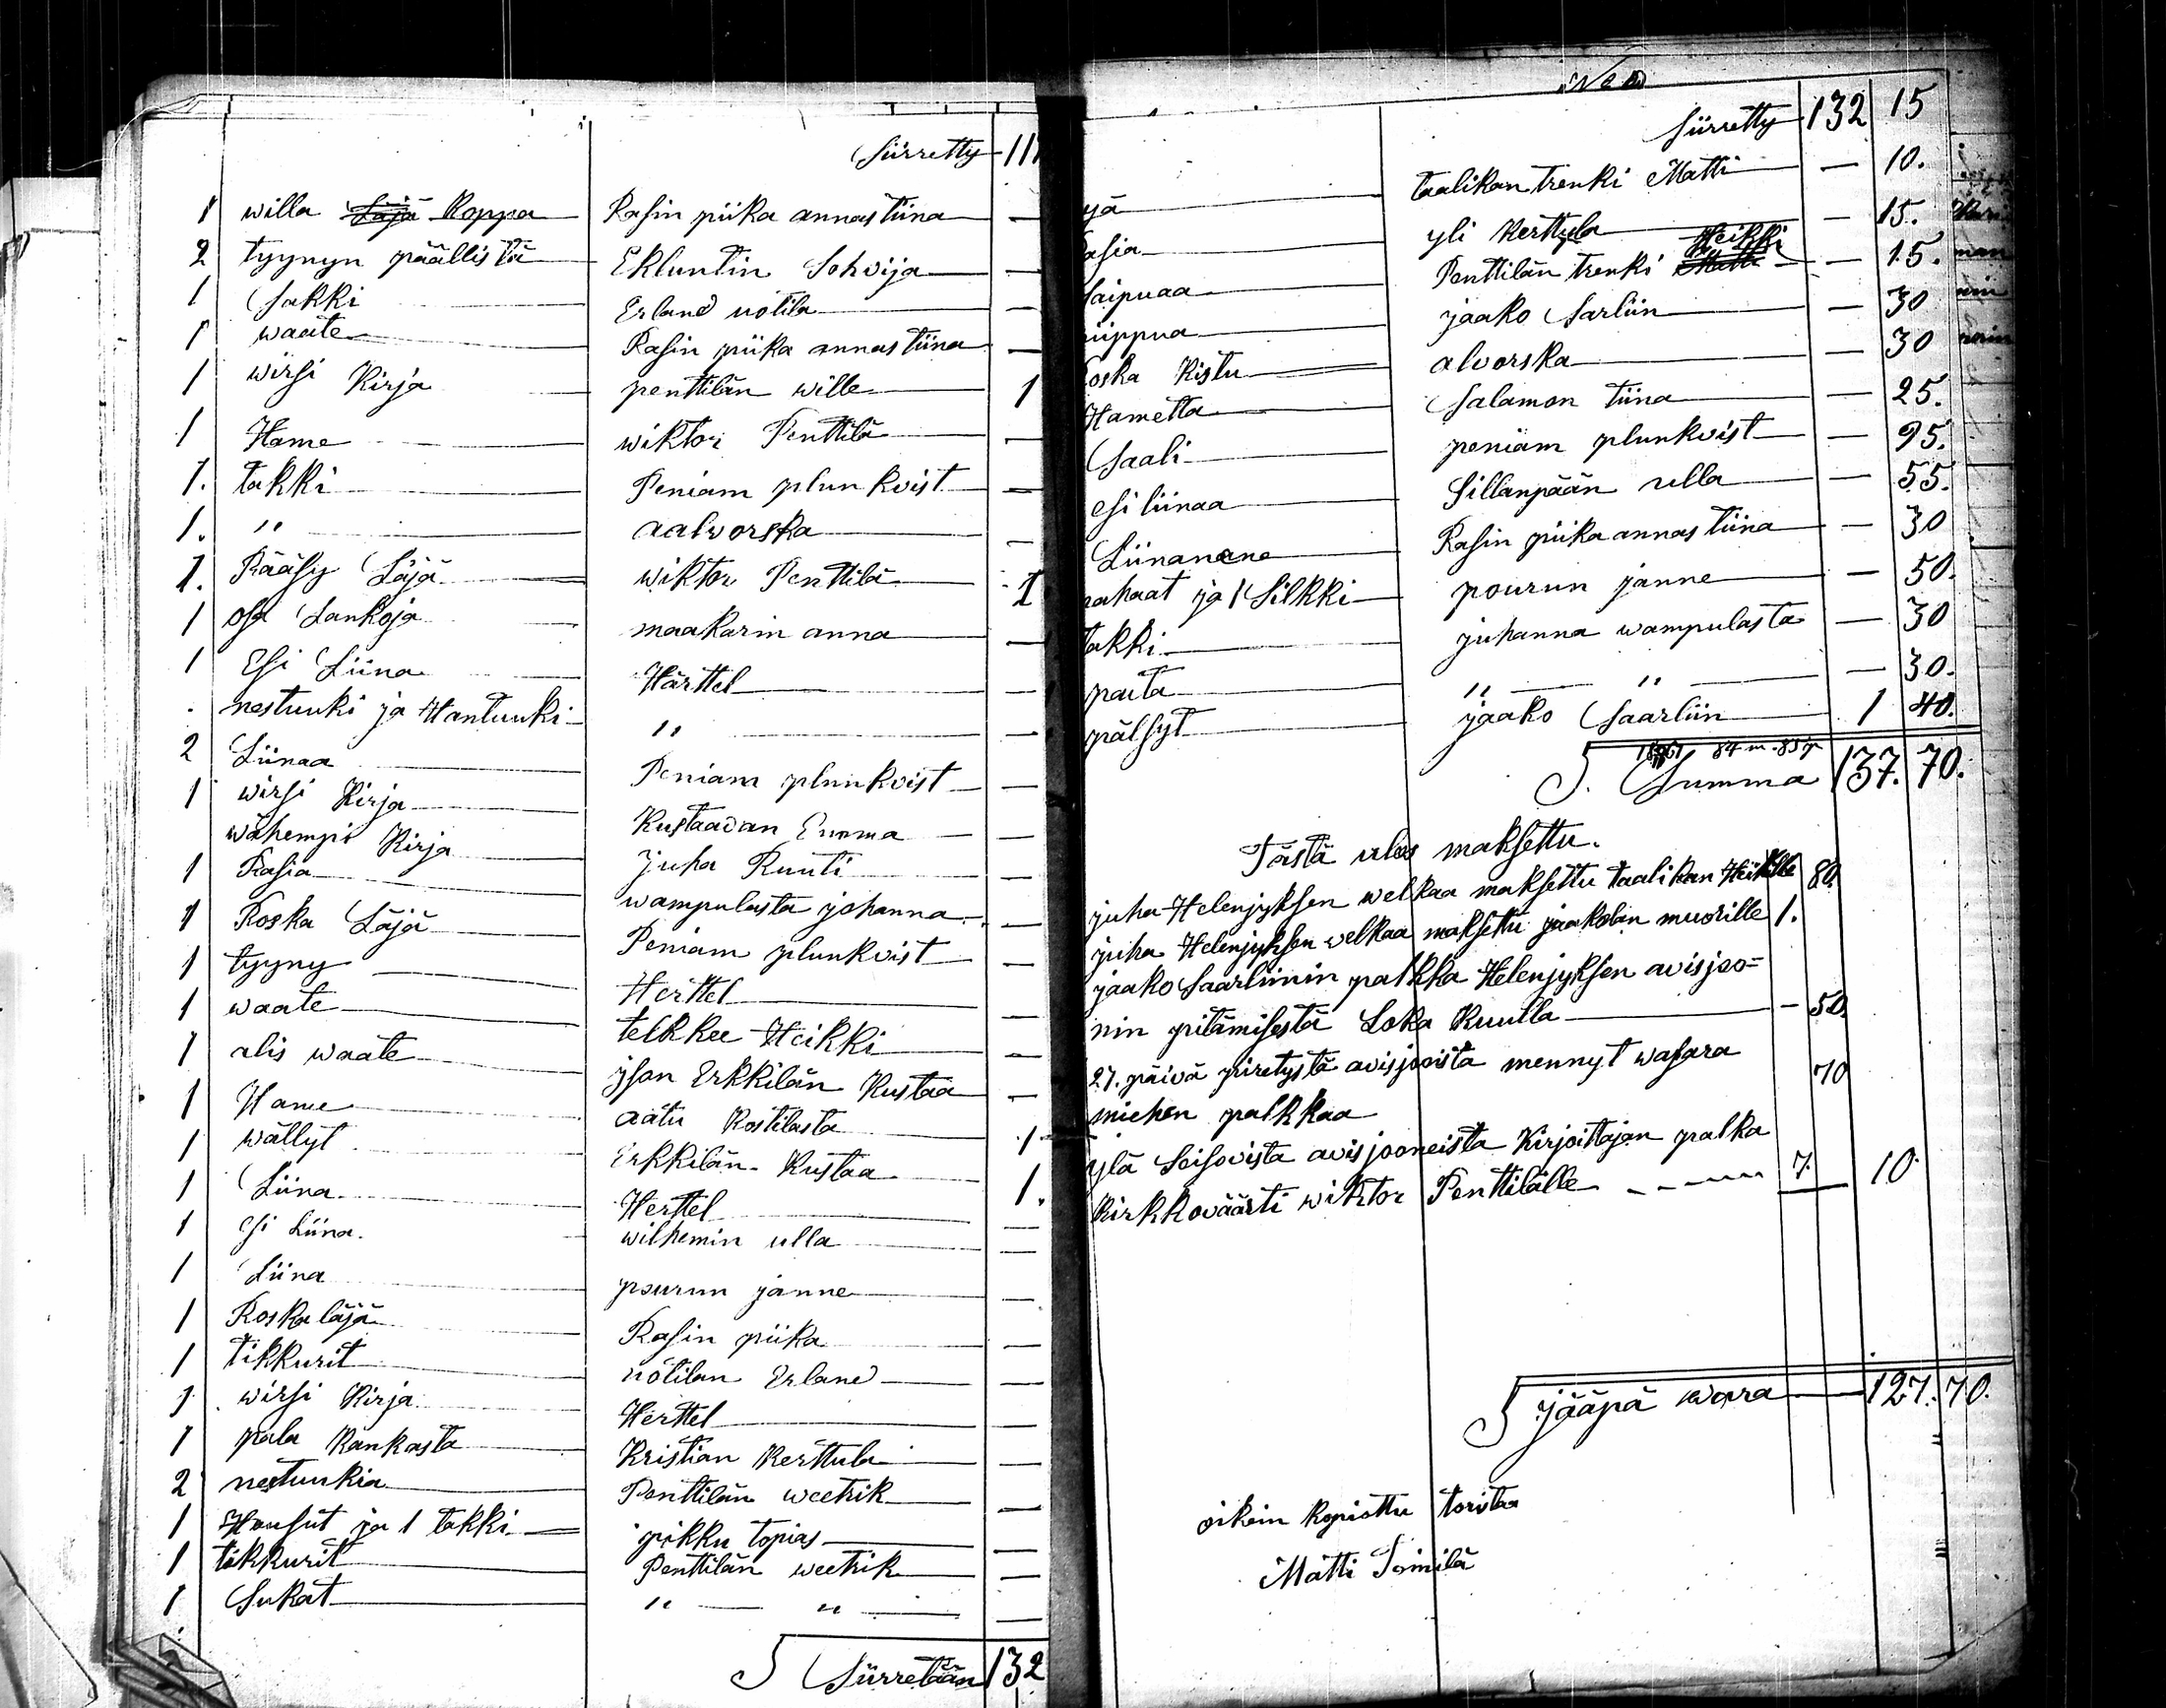 Siirretty 111
1 willa Läjä Koppa Rasin piika annastiina —
2 tyynyn päällistä Ekluntin Sohvija —
1 Sakki Erland uotila —
1 waate Rasin piika annastiina —
1 wirsi Kirja penttilän wille 1
1 Hame wiktor Penttilä —
1. takki Peniam plunkvist —
1. " aalvorska —
1. Rääsy Läjä wiktor Penttilä 1
1 osa Lankoja maakarin anna —
1 Esi Liina Härttel —
nestuuki ja Hantuuki " —
2 Liinaa Peniam plunkvist —
1 wirsi Kirja Kustaavan Emma —
wähempi Kirja Juha Ruuti
1 Rasia wampulasta johanna —
1 Roska Läjä Peniam plunkvist —
1 tyyny Herttel —
1 waate telkkee Heikki —
1 alis waate ison Erkkilän Kustaa —
1 Hame aatu Kostilasta 1
1 wällyt Erkkilän Kustaa 1.
1 Liina Herttel —
1 esi Liina wilhemin ulla —
1 Liina pourun janne —
1 Roska läjä Rasin piika —
1 tikkurit uotilan Erland —
1 wirsi Kirja Herttel —
1 pala Kankasta Kristian Kerttula —
2 nestuukia Penttilän weetrik —
1 Housut ja 1 takki pikku topias —
1 tikkurit Penttilän weetrik —
1 Sukat " — " —
S Siirretään 132
Siirretty 132 15
jä taalikan trenki Matti — 10.
asia yli Kerttula — 15.
Saipuaa Penttilän trenki Matti Heikki — 15.
piippua jaako Sarliin — 30
oska Kistu alvorska — 30
Hametta Salamon tiina — 25.
Saali peniam plunkvist — 95.
esi liinaa Sillanpään ulla — 55.
Liinanene Rasin piika annastiina — 30
rahaat ja 1 Silkki pourun janne — 50.
takki juhanna wampulasta — 30
paita " — " — 30.
pälsyt jaako Saarliin 1 40.
S. Summa 137. 70.
Tästä ulos maksettu.
juha Helenjyksen welkaa maksettu taalikan Heikille 80.
juha Helenjyksen welkaa maksettu jaakolan muorille 1.
jaako Saarlinin palkka Helenjyksen avisjoo=
nin pitämisestä Loka Kuulla — 50.
27. päivä piretystä avisjoosta mennyt wasara
miehen palkkaa 70
ylä Seisovista avisjooneista Kirjoittajan palka
Kirkkoväärti wiktor Penttilälle 7. 10.
S jääpä wara 127. 70.
oikein kopiottu toristaa
Matti Soinila